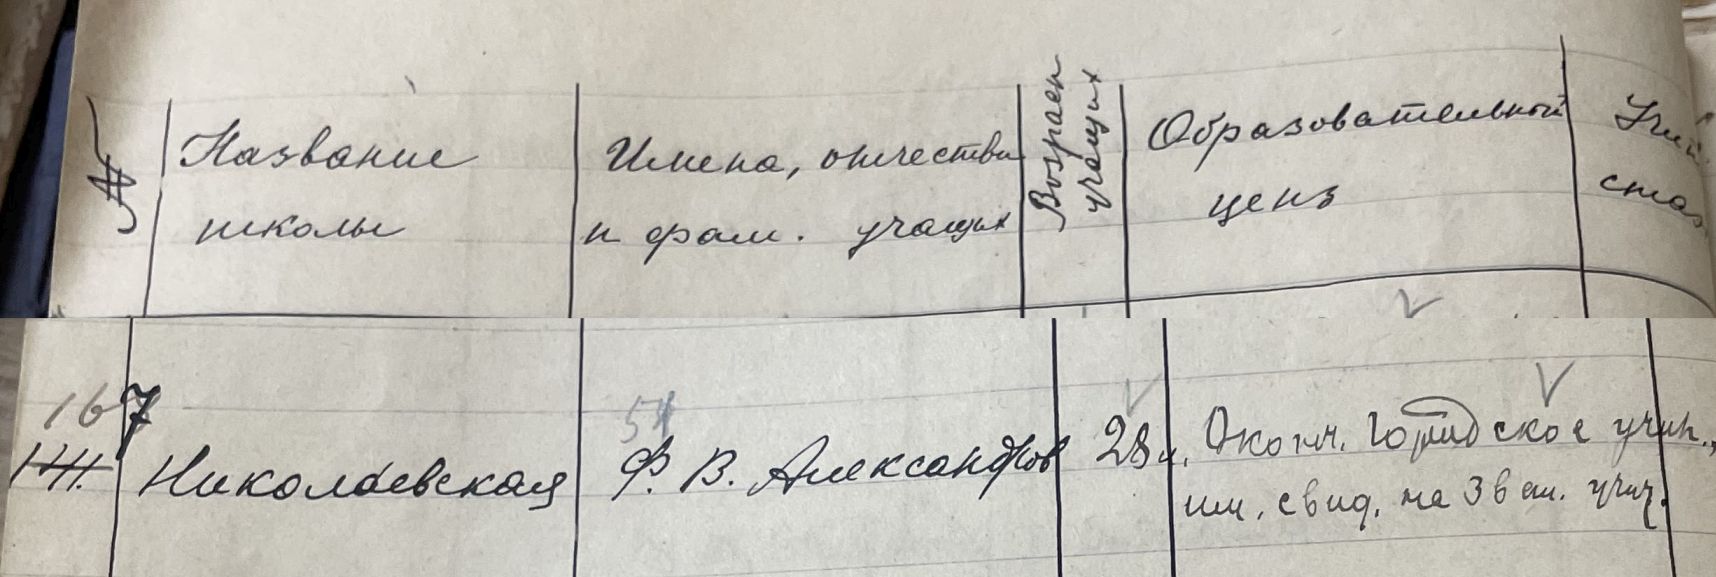 №
Название
школы
Имена, отчества
и фам. учащих
Возраст
учащих
Образовательный
ценз
167
Николаевская
54
Ф. В. Александров
28 л.
Оконч. Городское учил.,
им. свид. на зван. учит.